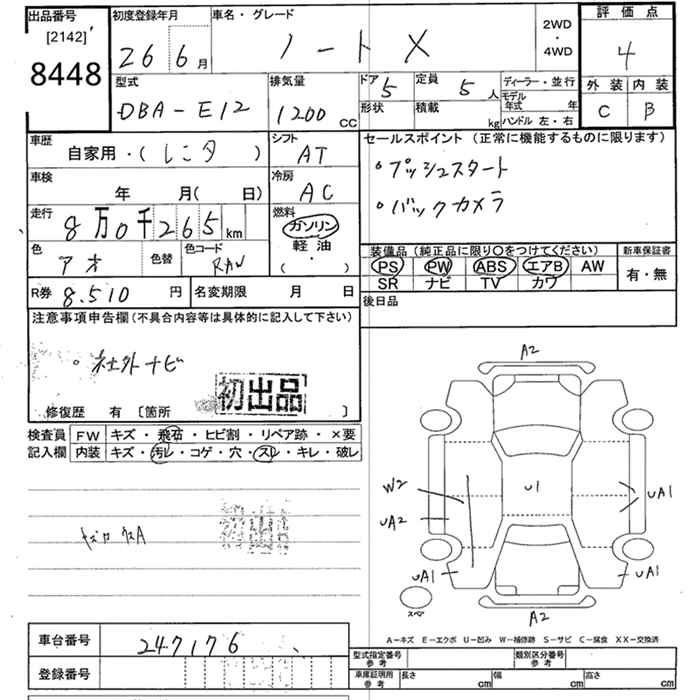 出品番号 初度登録年月 車名・グレード 2WD・4WD 評価点
[2142]
8448 26 6月 ノート X 4
型式 排気量 ドア 5 定員 5人 ディーラー・並行 外装 内装
DBA-E12 1200cc 形状 積載 kg モデル年式 年 C B
ハンドル 左・右
車歴 シフト セールスポイント（正常に機能するものに限ります）
自家用・(レンタ) AT •プッシュスタート
車検 冷房 •バックカメラ
年 月(日) AC
走行 燃料
8万0千265km ガソリン
色 色替 色コード 軽油 装備品（純正品に限り○をつけてください） 新車保証書
アオ RAW (・) PS PW ABS エアB AW 有・無
SR ナビ TV カワ
R券 8.510円 名変期限 月 日 後日品
注意事項申告欄（不具合内容等は具体的に記入して下さい）
•社外ナビ
初出品
修復歴 有 [箇所 ]
検査員 FW キズ・飛石・ヒビ割・リペア跡・×要
記入欄 内装 キズ・汚レ・コゲ・穴・スレ・キレ・破レ
初出品
A2
W2 U1 UA1
UA2
UA1 UA1
スペア A2
A-キズ E-エクボ U-凹み W-補修跡 S-サビ C-腐食 XX-交換済
車台番号 247176
登録番号
型式指定番号 参考 類別区分番号 参考
車庫証明用 参考 長さ cm 幅 cm 高さ cm